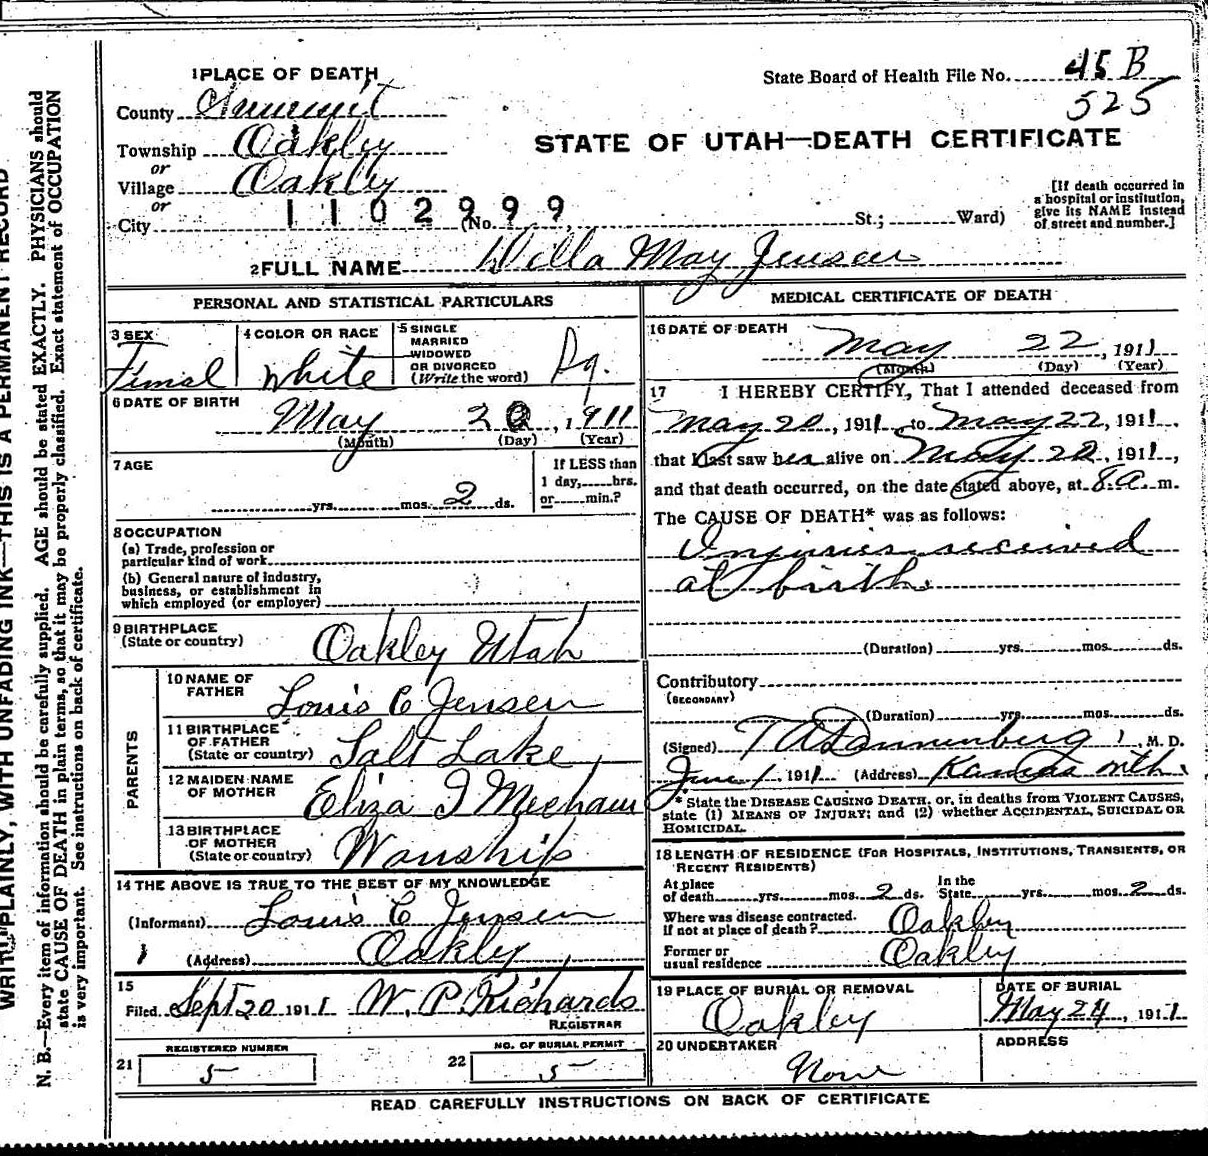 WRITE PLAINLY, WITH UNFADING INK—THIS IS A PERMANENT RECORD
N. B.—Every item of information should be carefully supplied. AGE should be stated EXACTLY. PHYSICIANS should
state CAUSE OF DEATH in plain terms, so that it may be properly classified. Exact statement of OCCUPATION
is very important. See instructions on back of certificate.
1 PLACE OF DEATH
State Board of Health File No. 45 B
525
County Summit
STATE OF UTAH—DEATH CERTIFICATE
Township Oakley
or
Village Oakley
or
City
1102999
(No. St.; Ward)
[If death occurred in
a hospital or institution,
give its NAME instead
of street and number.]
2 FULL NAME Willa May Jensen
PERSONAL AND STATISTICAL PARTICULARS
3 SEX
Fimal
4 COLOR OR RACE
White
5 SINGLE
MARRIED
WIDOWED
OR DIVORCED
(Write the word)
6 DATE OF BIRTH
May 20, 1911
(Month) (Day) (Year)
7 AGE
yrs. mos. 2 ds.
If LESS than
1 day, hrs.
or min.?
8 OCCUPATION
(a) Trade, profession or
particular kind of work
(b) General nature of industry,
business, or establishment in
which employed (or employer)
9 BIRTHPLACE
(State or country)
Oakley Utah
PARENTS
10 NAME OF
FATHER
Louis C Jensen
11 BIRTHPLACE
OF FATHER
(State or country)
Salt Lake
12 MAIDEN NAME
OF MOTHER
Eliza I Mecham
13 BIRTHPLACE
OF MOTHER
(State or country)
Wanship
14 THE ABOVE IS TRUE TO THE BEST OF MY KNOWLEDGE
(Informant) Louis C Jensen
(Address) Oakley
15
Filed Sept 20 1911 W. P. Richards
REGISTRAR
REGISTERED NUMBER
21 5
NO. OF BURIAL PERMIT
22 5
MEDICAL CERTIFICATE OF DEATH
16 DATE OF DEATH
May 22, 1911
(Month) (Day) (Year)
17 I HEREBY CERTIFY, That I attended deceased from
May 20, 1911 to May 22, 1911,
that I last saw her alive on May 20, 1911,
and that death occurred, on the date stated above, at 8 a. m.
The CAUSE OF DEATH* was as follows:
Injuries received
at birth.
(Duration) yrs. mos. ds.
Contributory
(SECONDARY)
(Duration) yrs. mos. ds.
(Signed) T A Dannenberg, M. D.
June 1 1911 (Address) Kamas Utah
* State the DISEASE CAUSING DEATH, or, in deaths from VIOLENT CAUSES,
state (1) MEANS OF INJURY; and (2) whether ACCIDENTAL, SUICIDAL OR
HOMICIDAL.
18 LENGTH OF RESIDENCE (FOR HOSPITALS, INSTITUTIONS, TRANSIENTS, OR
RECENT RESIDENTS)
At place
of death yrs. mos. 2 ds.
In the
State yrs. mos. 2 ds.
Where was disease contracted.
if not at place of death? Oakley
Former or
usual residence Oakley
19 PLACE OF BURIAL OR REMOVAL
Oakley
DATE OF BURIAL
May 24, 1911
20 UNDERTAKER
None
ADDRESS
READ CAREFULLY INSTRUCTIONS ON BACK OF CERTIFICATE